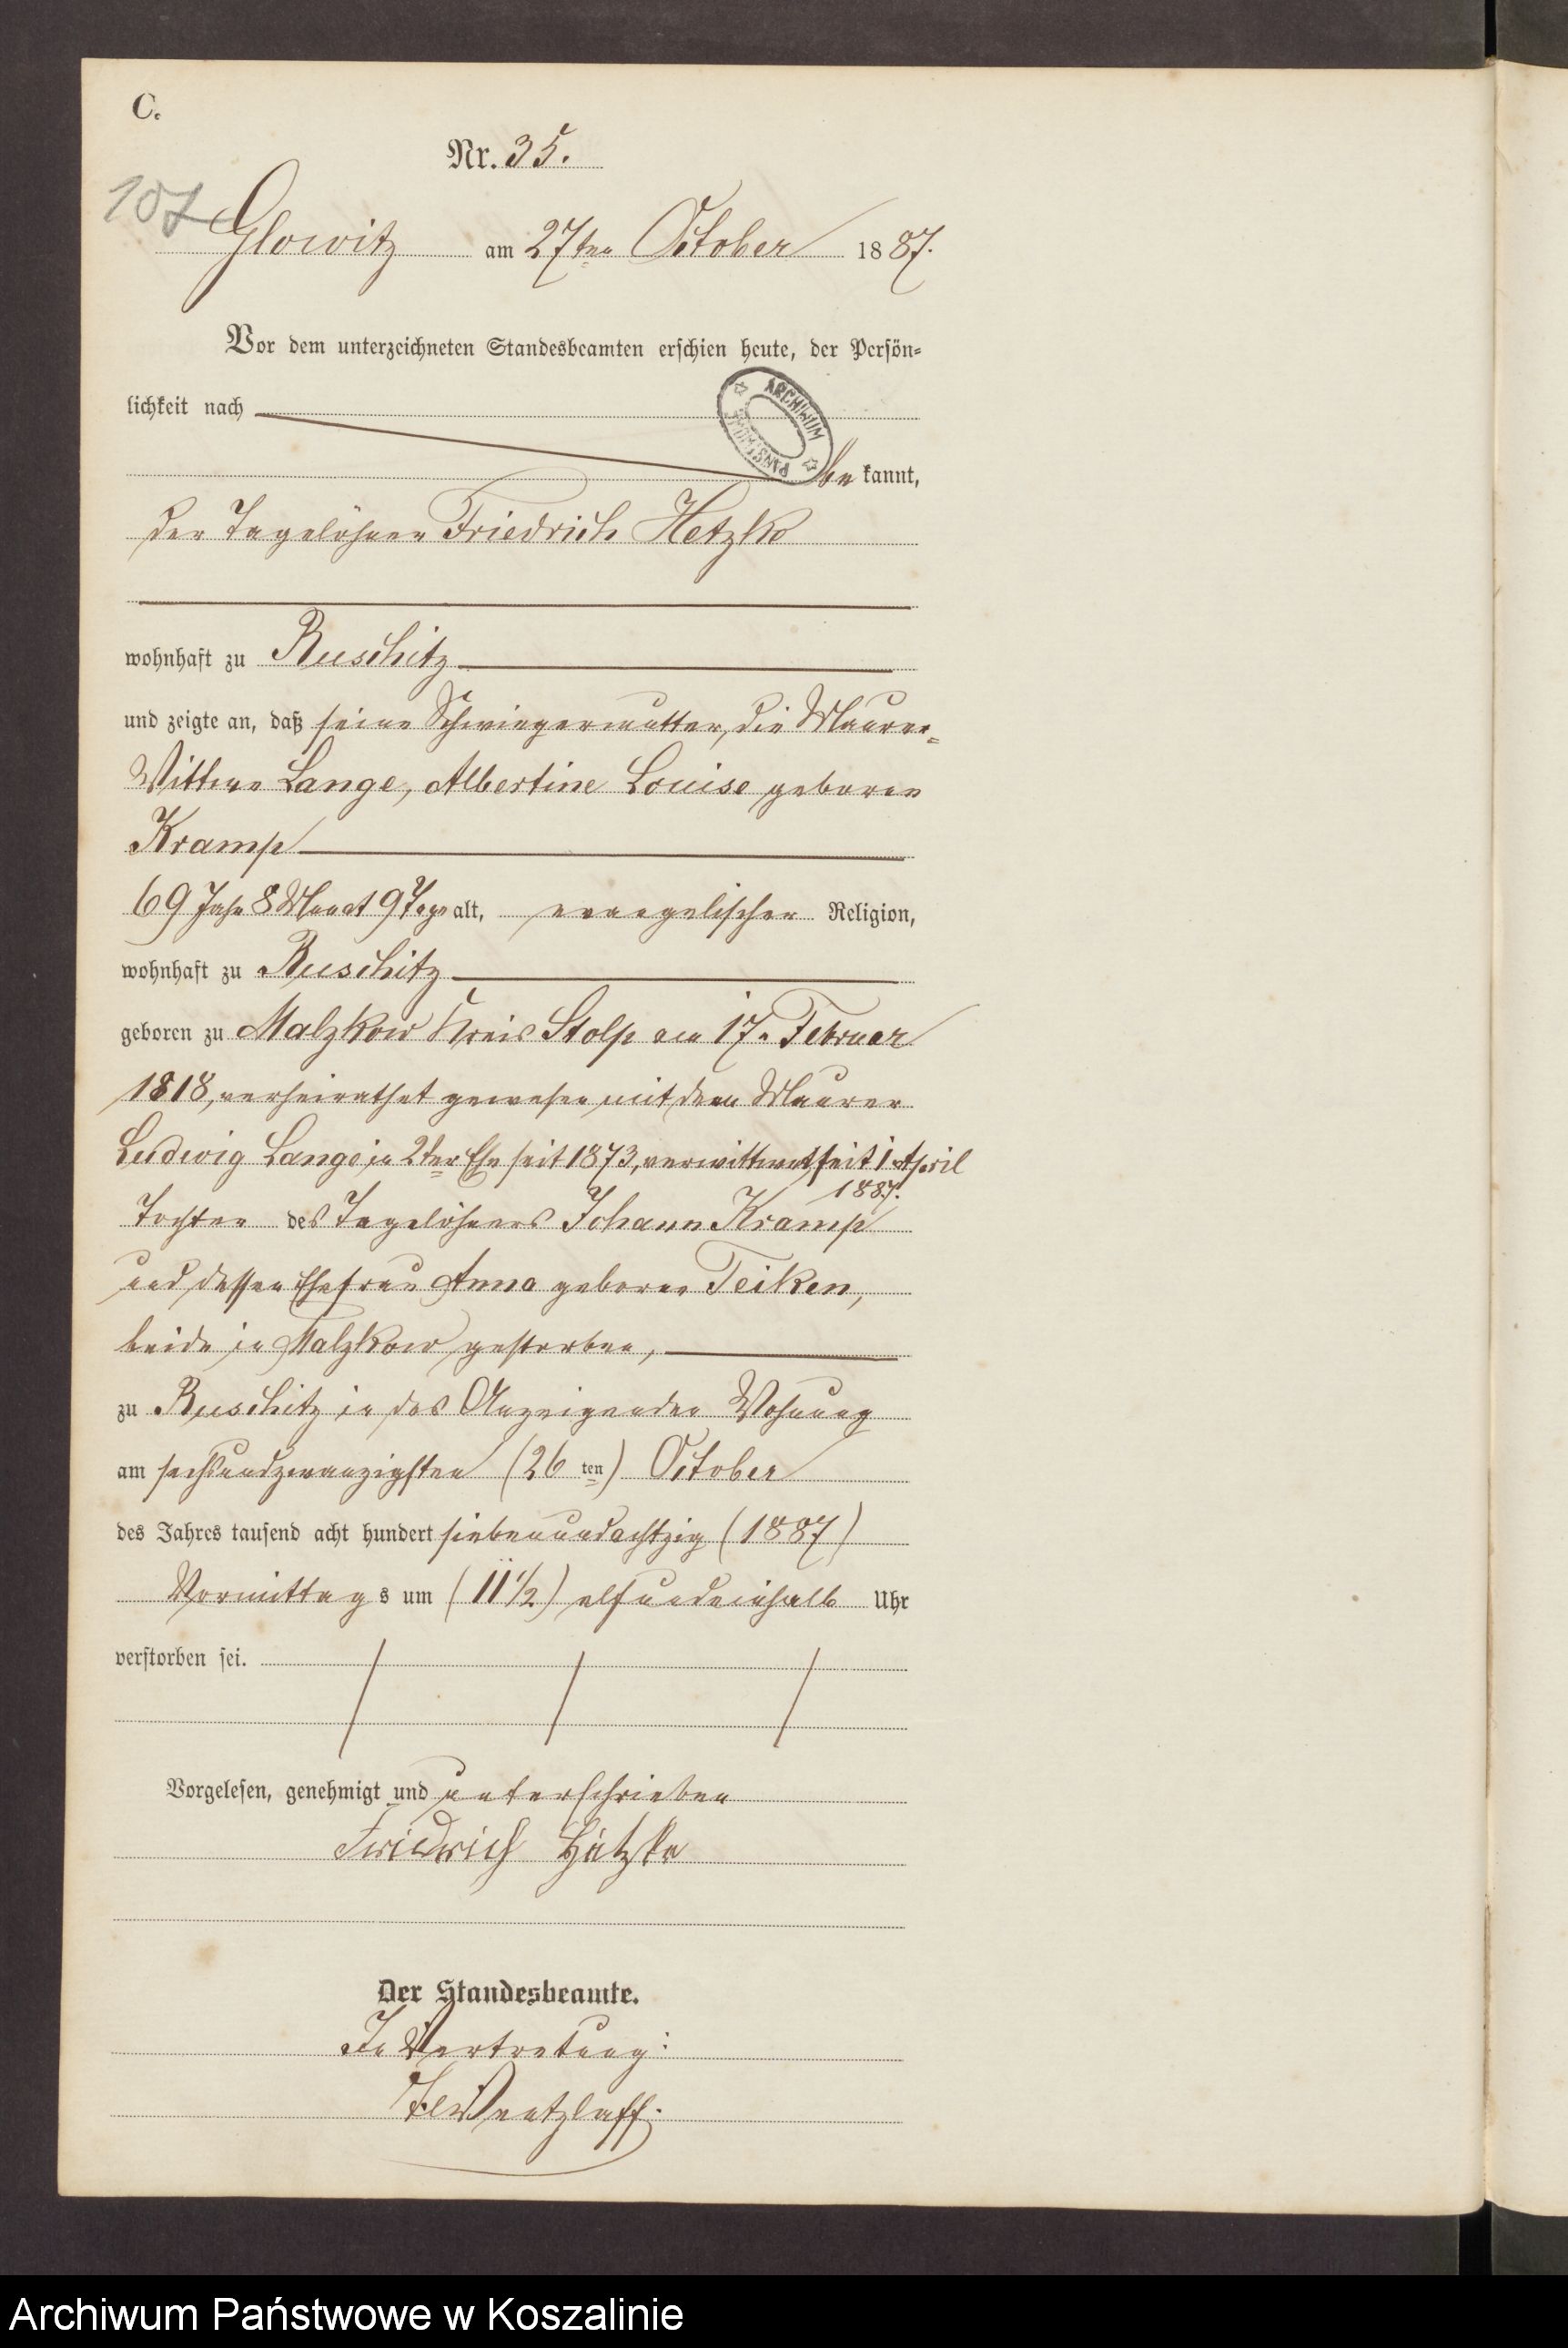 C.
Nr. 35.
107
Glowitz am 27ten October 1887.
Vor dem unterzeichneten Standesbeamten erschien heute, der Persön-
lichkeit nach
ARCHIWUM PAŃSTWOWE
be kannt,
der Tagelöhner Friedrich Hetzke
wohnhaft zu Ruschitz
und zeigte an, daß seine Schwiegermutter, die Maurer-
Wittwe Lange, Albertine Louise geboren
Kramp
69 Jahr 8 Monat 9 Tage alt, evangelischer Religion,
wohnhaft zu Ruschitz
geboren zu Malzkow Kreis Stolp am 17. Februar
1818, verheirathet gewesen mit dem Maurer
Ludwig Lange in 2ter Ehe seit 1873, verwittwet seit 1. April
1887.
Tochter des Tagelöhners Johann Kramp
und dessen Ehefrau Anna geboren Teiken,
beide in Malzkow gestorben,
zu Ruschitz in des Anzeigenden Wohnung
am sechsundzwanzigsten (26 ten) October
des Jahres tausend acht hundert siebenundachtzig (1887)
Vormittags um (11 1/2) elfundeinhalb Uhr
verstorben sei.
Vorgelesen, genehmigt und unterschrieben
Friedrich Hätzke
Der Standesbeamte.
In Vertretung:
Wentzlaff.
Archiwum Państwowe w Koszalinie